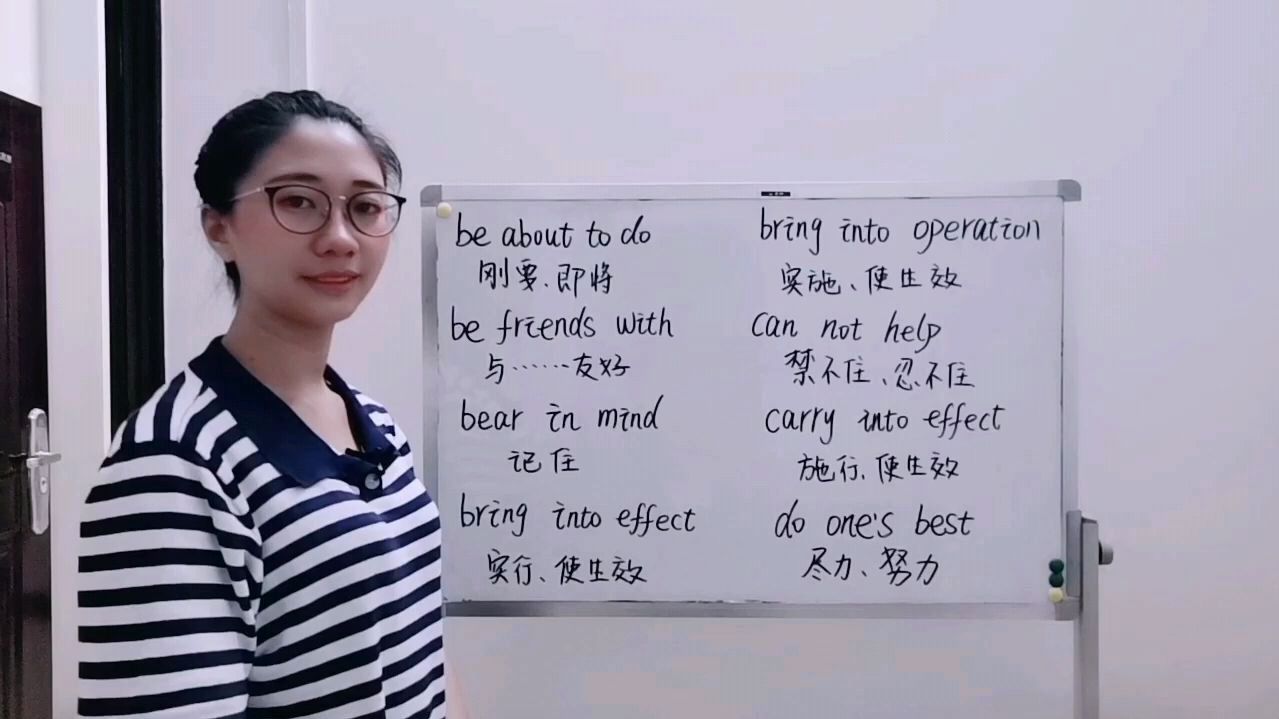 be about to do
刚要、即将
be friends with
与……友好
bear in mind
记住
bring into effect
实行、使生效
bring into operation
实施、使生效
can not help
禁不住、忍不住
carry into effect
施行、使生效
do one's best
尽力、努力